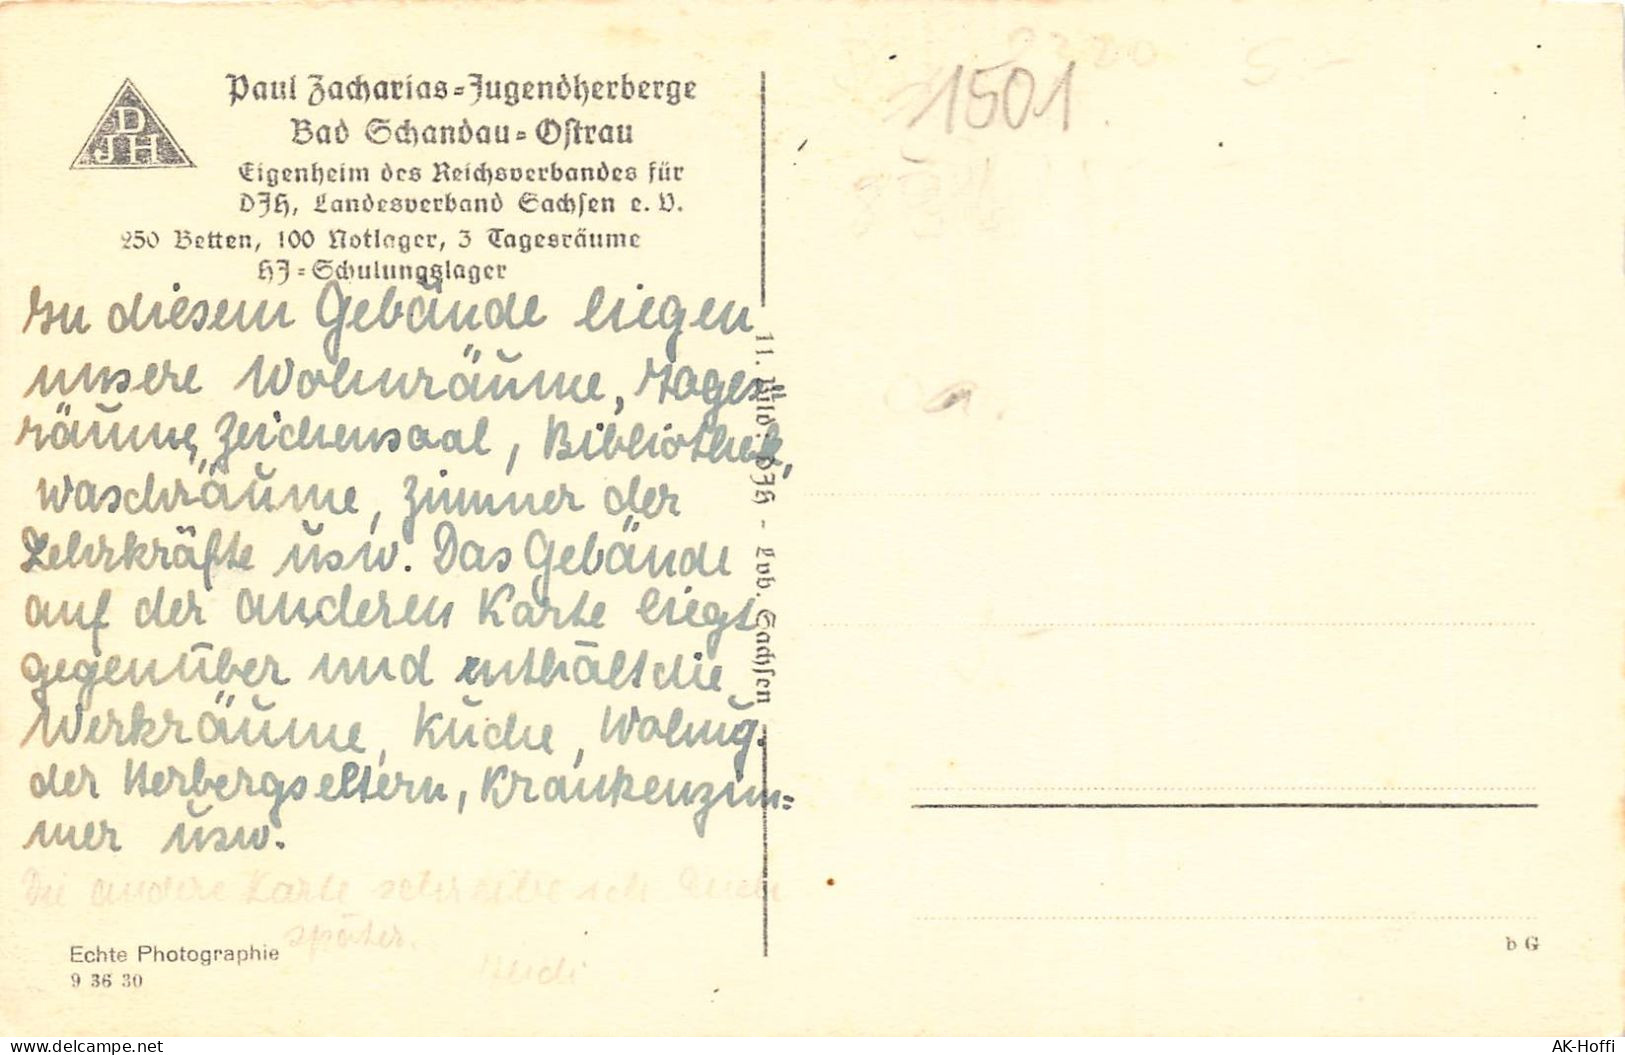 D
JH
Paul Zacharias-Jugendherberge
Bad Schandau-Ostrau
Eigenheim des Reichsverbandes für
DJH, Landesverband Sachsen e. V.
250 Betten, 100 Notlager, 3 Tagesräume
HJ-Schulungslager
In diesem Gebäude liegen
unsere Wohnräume, Tages=
räume, Zeichensaal, Bibliothek,
Waschräume, Zimmer der
Lehrkräfte usw. Das Gebäude
auf der anderen Karte liegt
gegenüber und enthält die
Werkräume, Küche, Wohnug.
der Herbergseltern, Krankenzim=
mer usw.
Die andere Karte schreibe ich Euch
später.
Echte Photographie
9 36 30
11. Bild. DJH - Lvb. Sachsen
1501
b G
AK-Hoffi